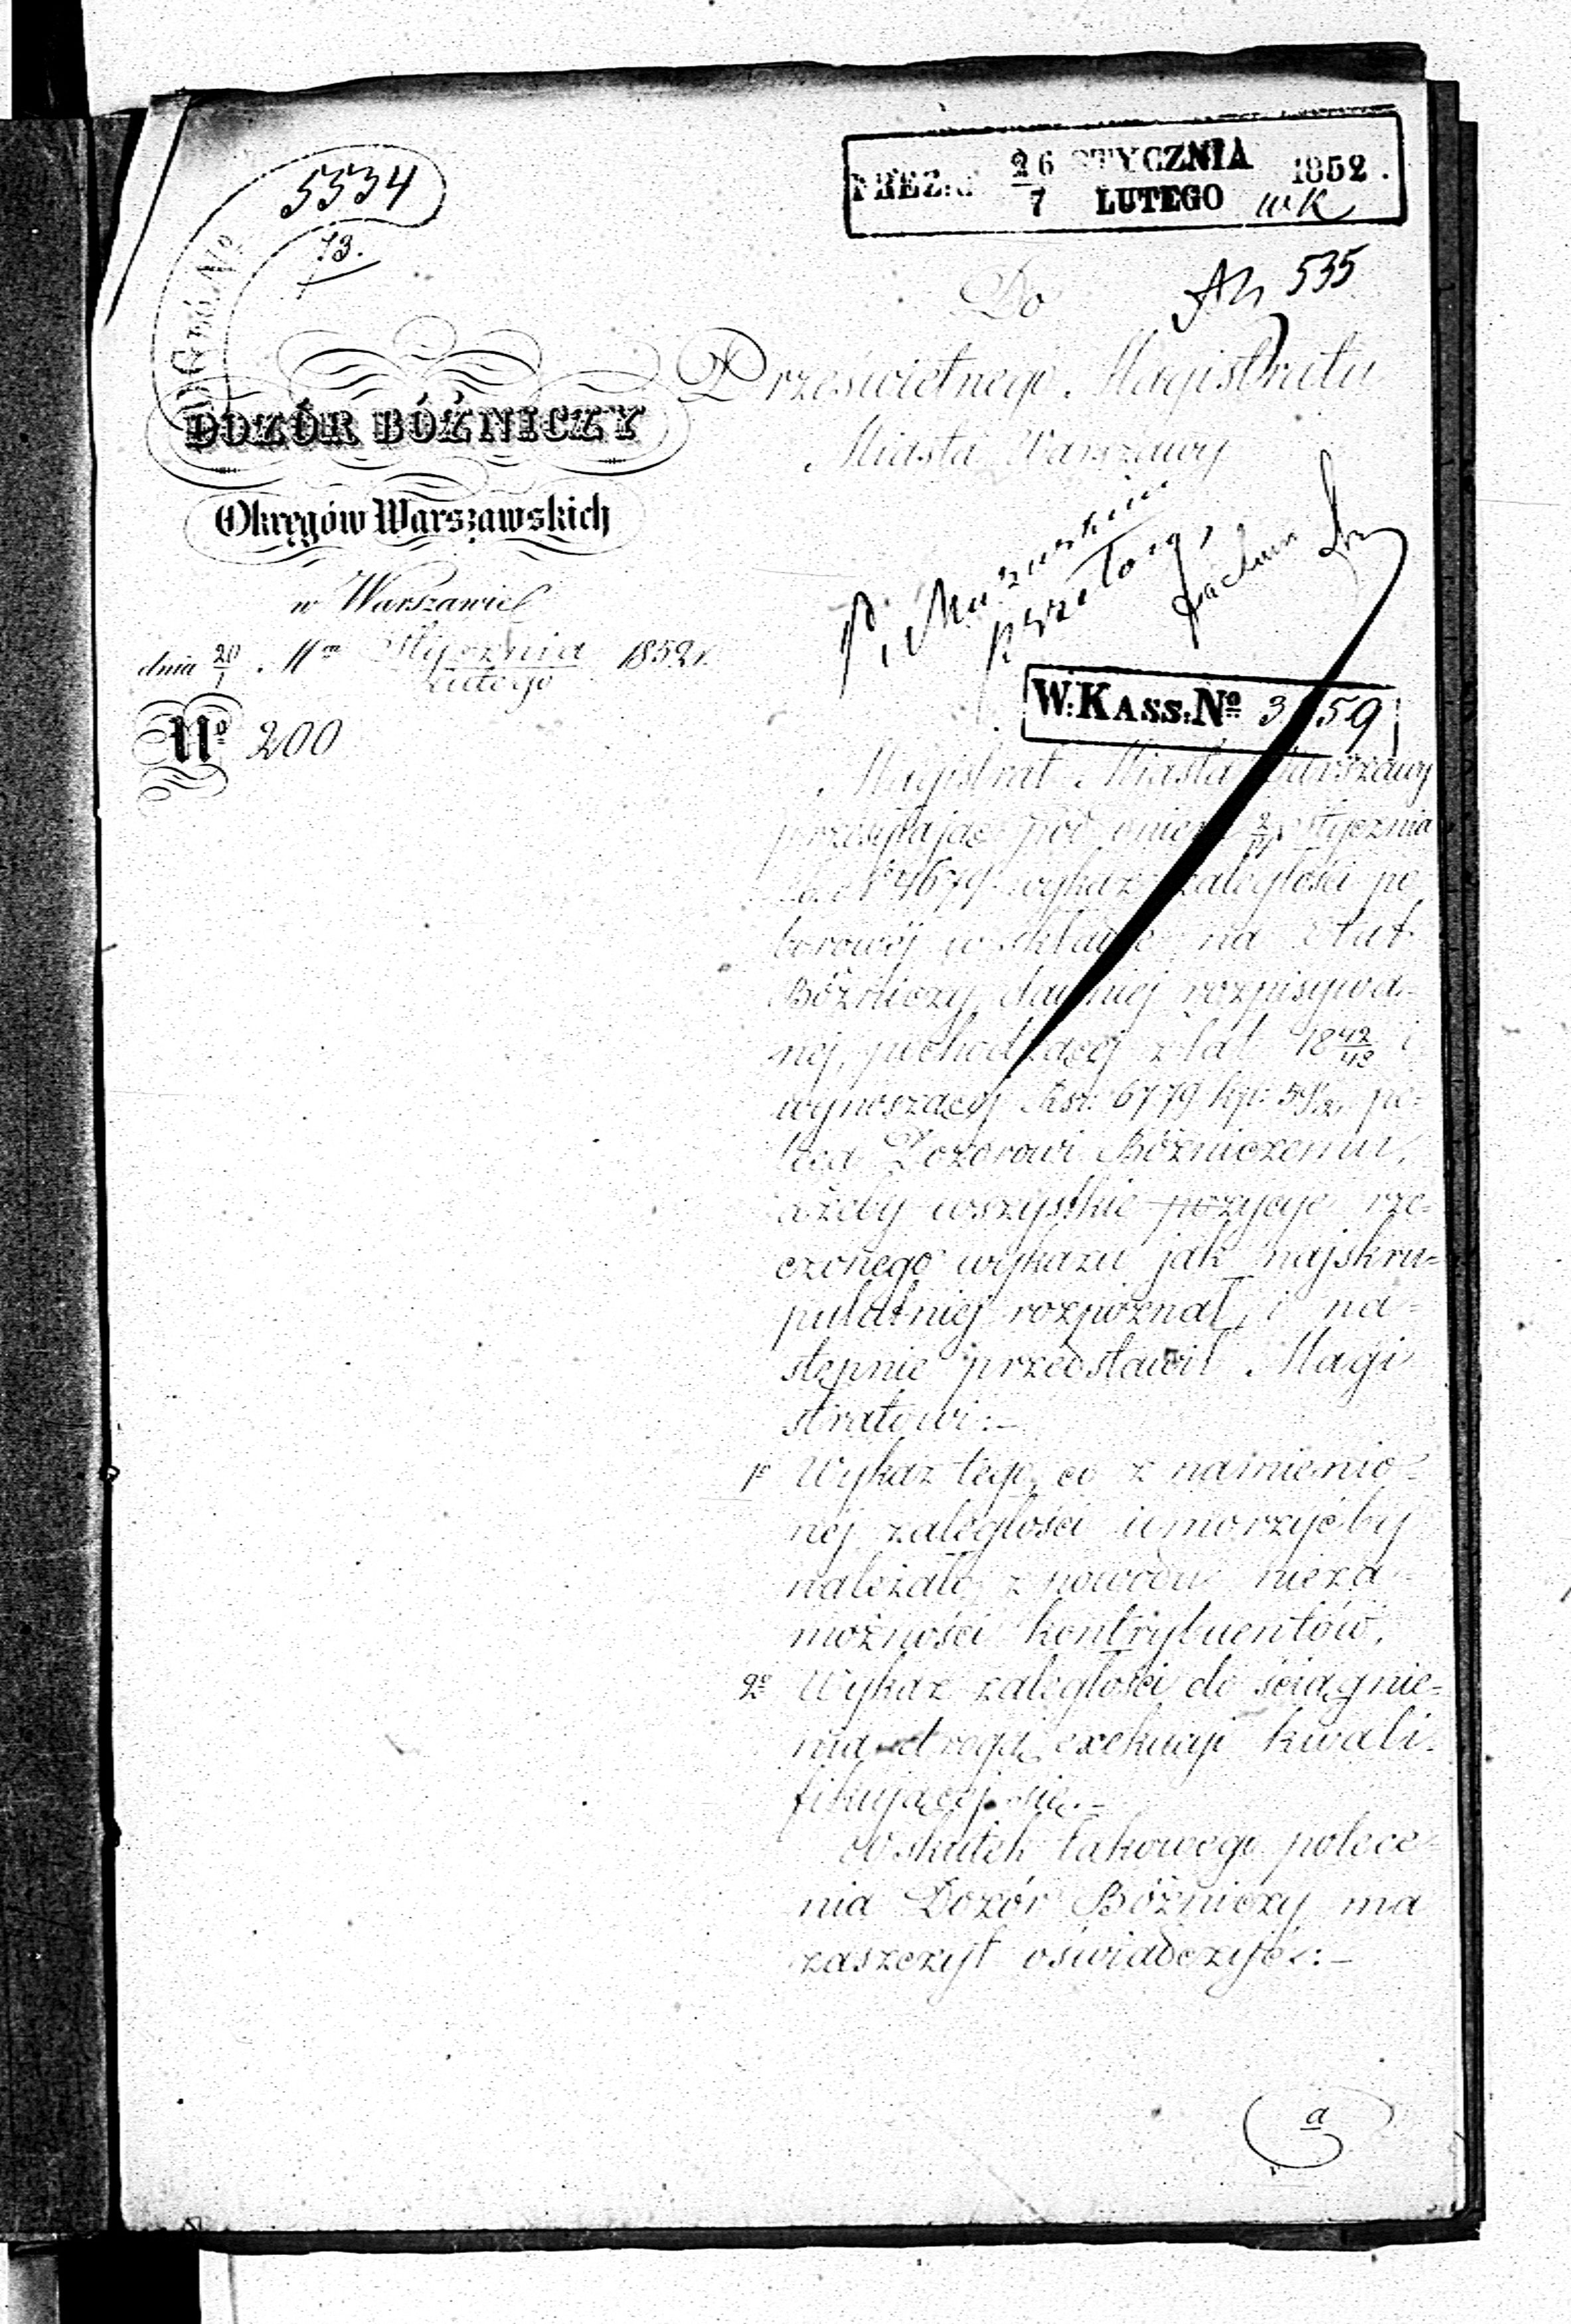 5534
73.
PREZ: 26 STYCZNIA 1852.
7 LUTEGO
535
Do
Prześwietnego Magistratu
Miasta Warszawy
DOZÓR BÓŻNICZY
Okręgów Warszawskich
w Warszawie
dnia 20/1 Mca Stycznia/Lutego 1852 r.
No 200
W: KASS: No 3 59
Magistrat Miasta Warszawy
przesyłając pod dniem stycznia
4679 wykaz zaległości po
borowéj w składce na Etat
Bóżniczy dawniej rozpisywa=
nej, pochodzącej z lat 1842/43 i
wynoszącej Rsr. 6779 kp: 59½, po=
leca Dozorowi Bóżniczemu,
ażeby wszystkie pozycye rze=
czonego wykazu jak najskru=
pulatniej rozpoznał, i na=
stępnie przedstawił Magi
stratowi:—
1o Wykaz tego, co z namienio=
nej zaległości umorzyćby
należało z powodu nieza=
możności kontrybuentów,
2o Wykaz zaległości do ściągnie=
nia drogą exekucyi kwali=
fikującej się.—
W skutek takowego polece=
nia Dozór Bóżniczy ma
zaszczyt oświadczyć:—
a